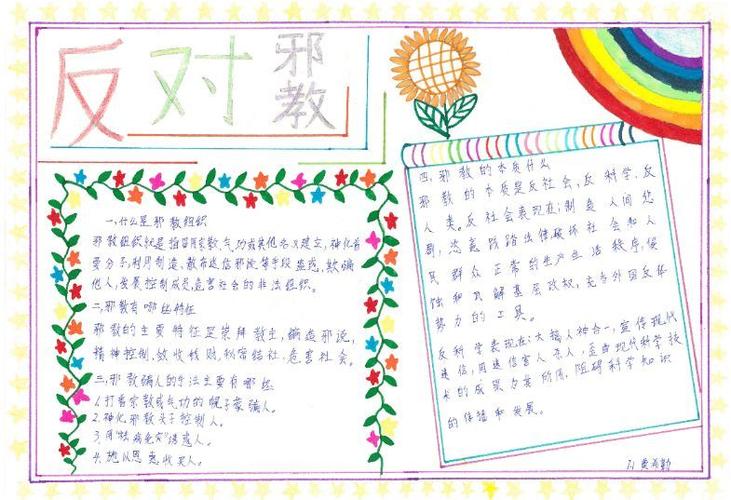 反对邪教
一、什么是邪教组织
邪教组织就是指冒用宗教、气功或其他名义建立,神化首
要分子,利用制造、散布迷信邪说等手段蛊惑、欺骗
他人,发展控制成员,危害社会的非法组织。
二、邪教有哪些特征
邪教的主要特征是崇拜教主,编造邪说,
精神控制,敛收钱财,秘密结社,危害社会。
三、邪教骗人的手法主要有哪些
1.打着宗教或气功的幌子蒙骗人。
2.神化邪教头子控制人。
3.用"祛病免灾"诱惑人。
4.施以恩惠收买人。
四、邪教的本质什么
邪教的本质是反社会,反科学,反
人类。反社会表现在:制造人间悲
剧,恣意践踏法律,破坏社会和人
民群众正常的生产生活秩序,侵
蚀和瓦解基层政权,充当外国反华
势力的工具。
反科学表现在:大搞人神合一,宣传现代
迷信,用迷信害人杀人,歪曲现代科学技
术的成果为其所用,阻碍科学知识
的传播和发展。